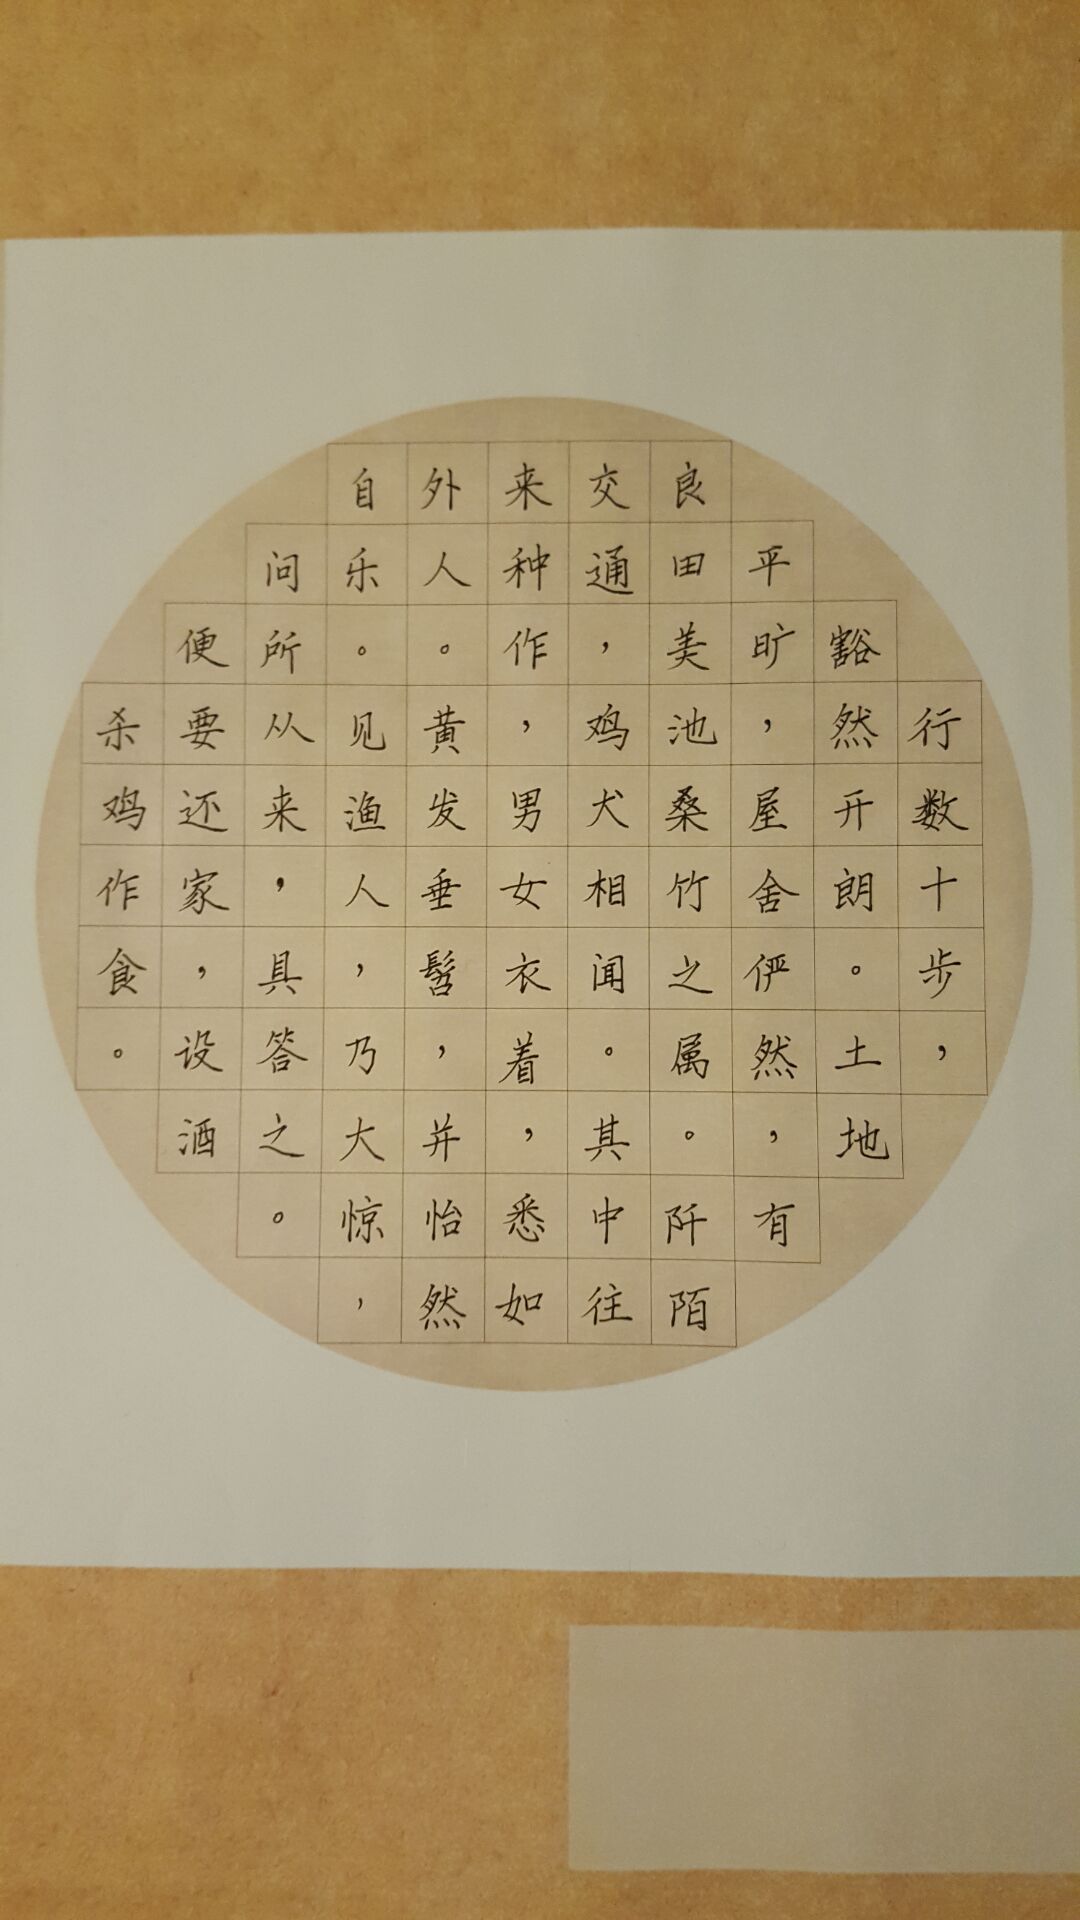 行数十步，
豁然开朗。土地
平旷，屋舍俨然，有
良田美池桑竹之属。阡陌
交通，鸡犬相闻。其中往
来种作，男女衣着，悉如
外人。黄发垂髫，并怡然
自乐。见渔人，乃大惊，
问所从来，具答之。
便要还家，设酒
杀鸡作食。